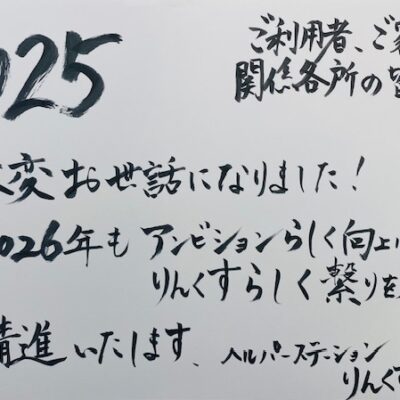 025
ご利用者、ご家
関係各所の皆
変お世話になりました！
2026年も アンビションらしく向上
りんくすらしく繋りを
精進いたします、 ヘルパーステーション
りんくす